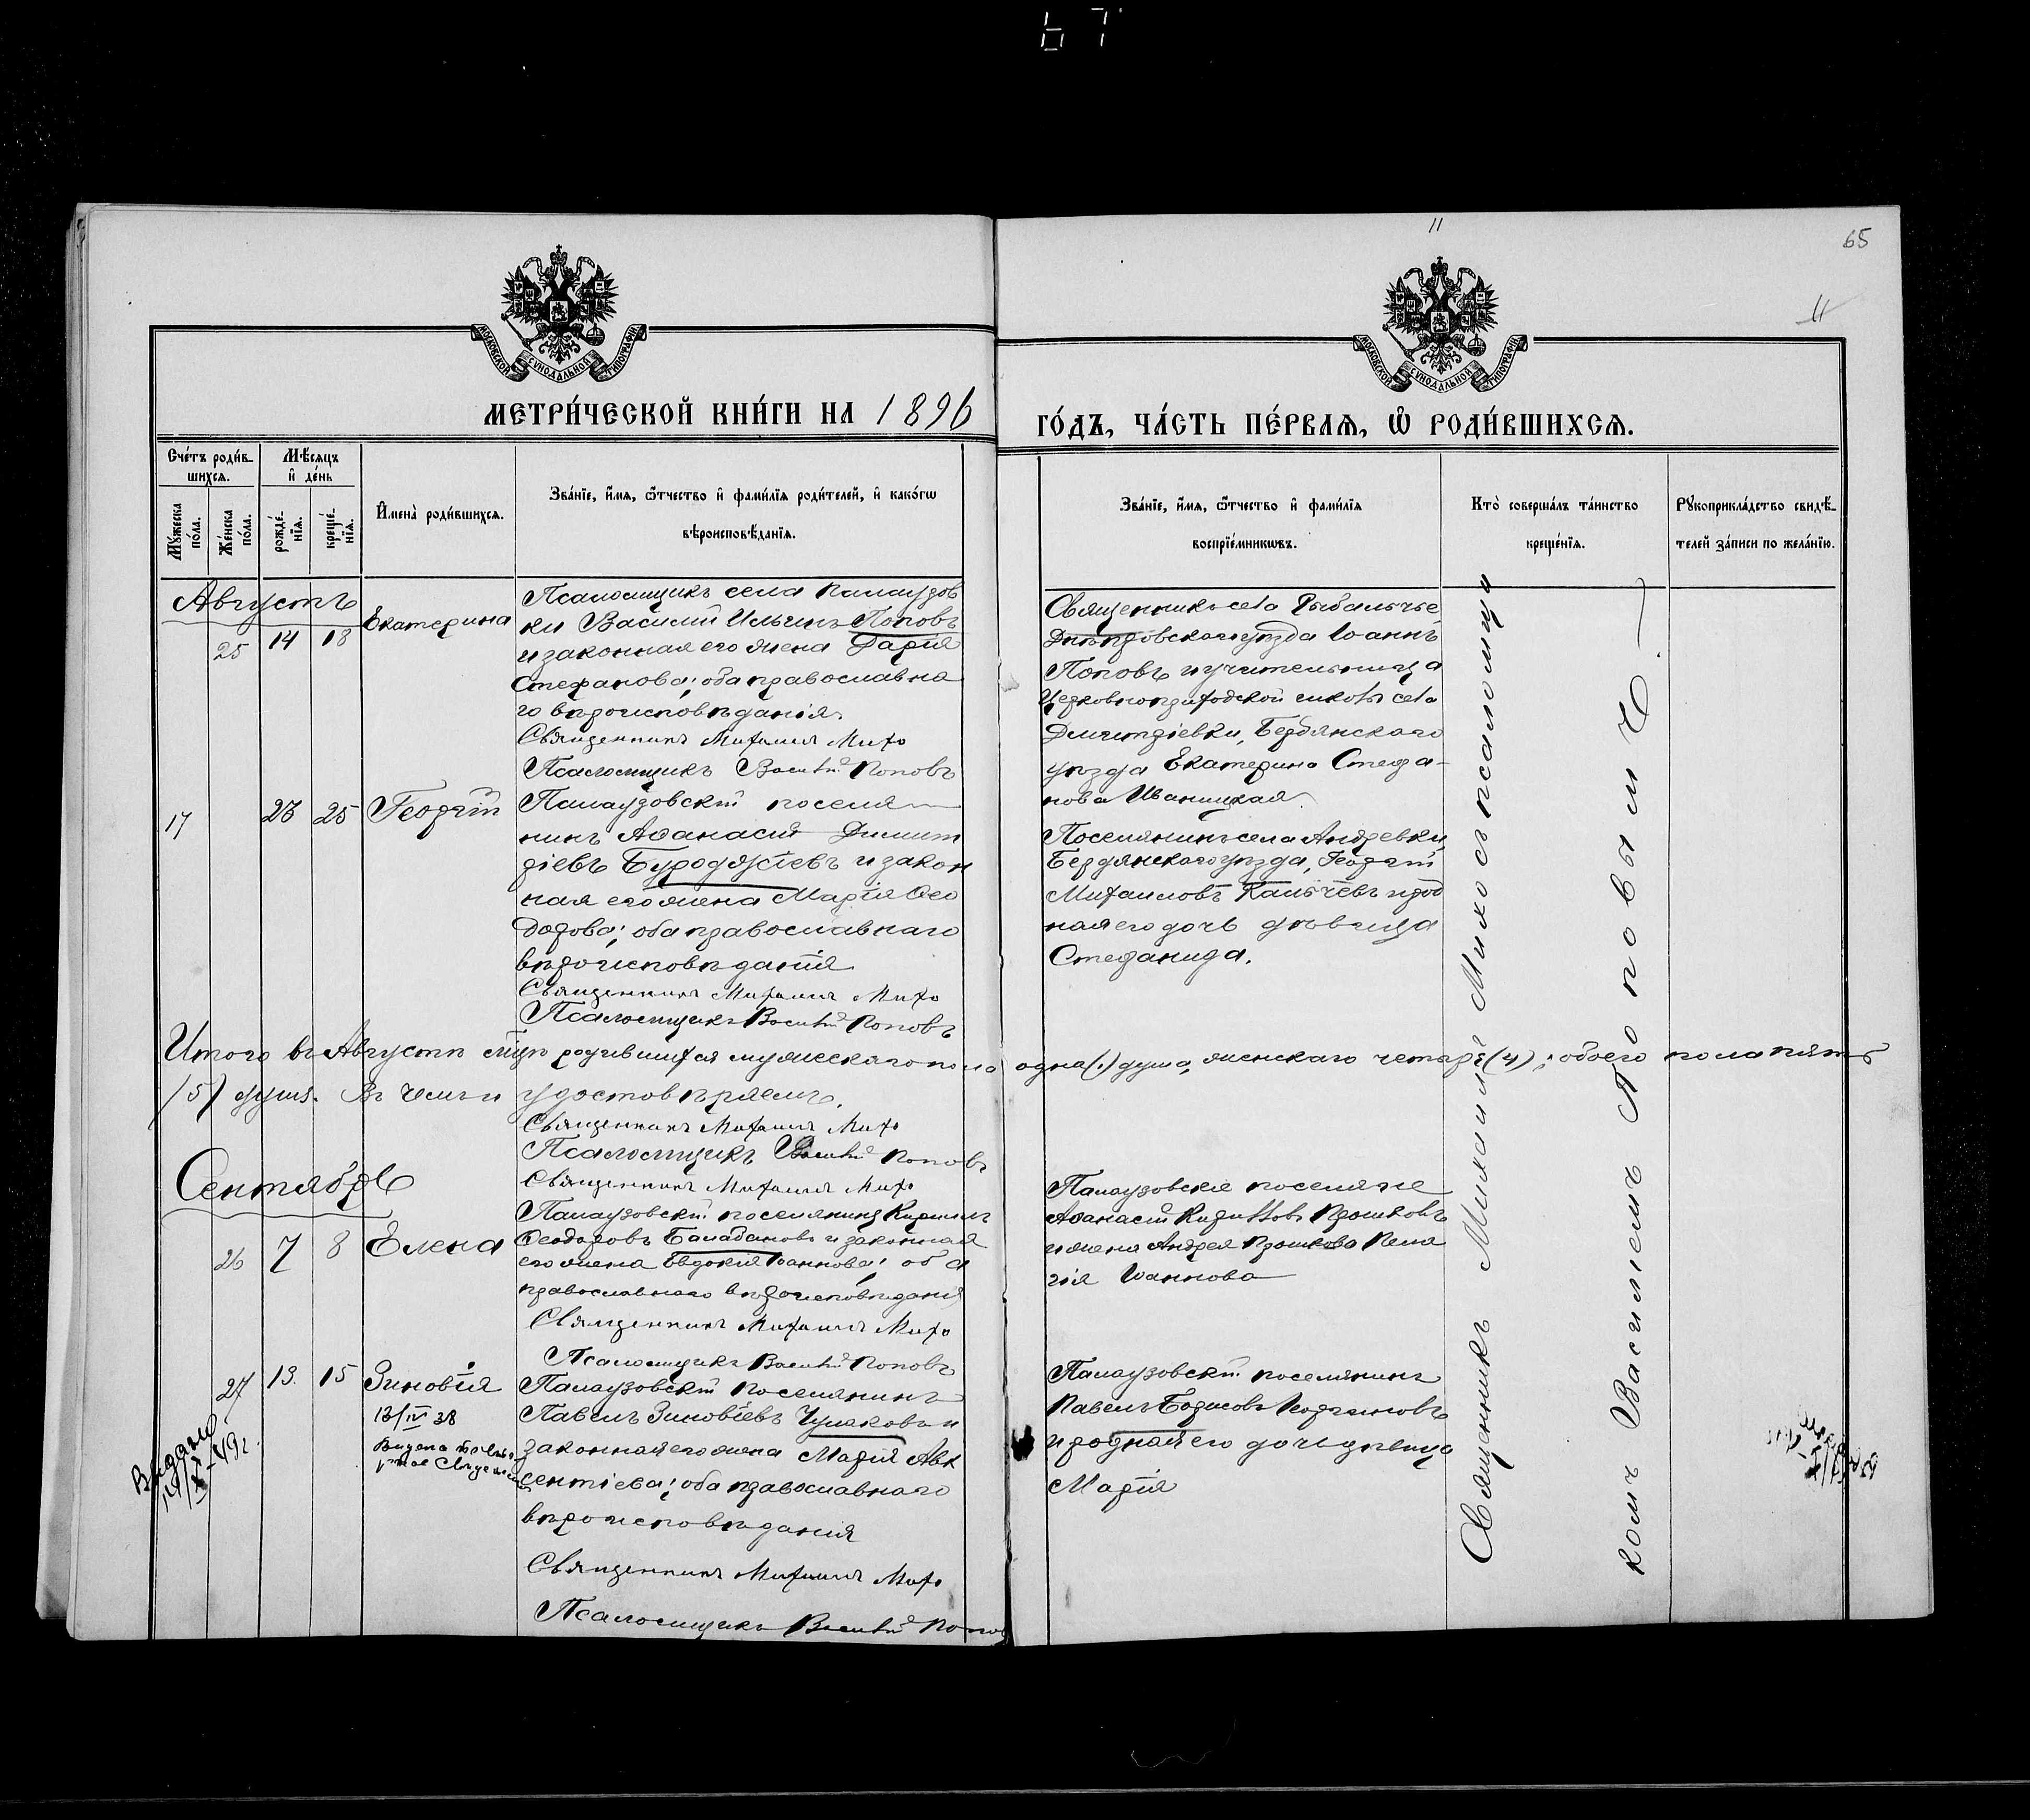 11
65
11
МОСКОВСКОЙ СУНОДАЛЬНОЙ ТИПОГРАФІИ
МОСКОВСКОЙ СУНОДАЛЬНОЙ ТИПОГРАФІИ
МЕТРИ́ЧЕСКОЙ КНИ́ГИ НА 1896
ГО́ДЪ, ЧА́СТЬ ПЕ́РВАѦ, Ѽ РОДИ́ВШИХСѦ.
Сче́тъ роди́в-
шихсѧ.
Мѣ́сѧцъ
и҆ де́нь
Мꙋ́жеска
по́ла.
Же́нска
по́ла.
рожде́-
нїѧ.
креще́-
нїѧ.
И҆мена̀ роди́вшихсѧ.
Зва́нїе, и҆́мѧ, ѻ҆́тчество и҆ фами́лїѧ роди́телей, и҆ како́гѡ
вѣроисповѣ́данїѧ.
Зва́нїе, и҆́мѧ, ѻ҆́тчество и҆ фами́лїѧ
воспрїе́мникѡвъ.
Кто̀ соверша́лъ та́инство
креще́нїѧ.
Рꙋкоприкла́дство свидѣ́-
телей за́писи по жела́нїю.
Августъ
25 14 18 Екатерина
Псаломщикъ села Палаузов
ки Василій Ильинъ Поповъ
и законная его жена Дарія
Стефанова; оба православна
го вѣроисповѣданія.
Священникъ Михаилъ Михо
Псаломщикъ Василій Поповъ
Священникъ села Рыбальчье
Днѣпровскаго уѣзда Іоаннъ
Поповъ и учительница
Церковноприходской школы села
Димитріевки, Бердянскаго
уѣзда Екатерина Стефа-
нова Иваницкая.
17 23 25 Георгій
Палаузовскій поселя
нинъ Аѳанасій Димит
ріевъ Бурдужіевъ и закон
ная его жена Марія Ѳео
дорова; оба православнаго
вѣроисповѣданія
Священникъ Михаилъ Михо
Псаломщикъ Василій Поповъ
Поселянинъ села Андревки,
Бердянскаго уѣзда, Георгій
Михаиловъ Кальчевъ и род
ная его дочь дѣвица
Стефанида.
Итого въ Августѣ мѣсяцѣ родившихся мужескаго пола одна (1) душа, женскаго четыре (4); обоего пола пять
(5) душъ. Въ чемъ и удостовѣряемъ.
Священникъ Михаилъ Михо
Псаломщикъ Василій Поповъ
Сентябрь
Священникъ Михаилъ Михо
26 7 8 Елена
Палаузовскій поселянинъ Кириллъ
Ѳеодоровъ Балабановъ и законная
его жена Евдокія Іоаннова; оба
православнаго вѣроисповѣданія
Священникъ Михаилъ Михо
Псаломщикъ Василій Поповъ
Палаузовскіе поселяне
Аѳанасій Кирилловъ Прошковъ
и жена Андрея Прошкова Пела
гія Іоаннова
27 13. 15 Зиновія
13/IV 38
Выдано
Палаузовскій поселянинъ
Павелъ Зиновіевъ Чумаковъ и
законная его жена Марія Авк
сентіева; оба православнаго
вѣроисповѣданія
Священникъ Михаилъ Михо
Псаломщикъ Василій Попов
Палаузовскій поселянинъ
Павелъ Борисовъ
и родная его дочь дѣвица
Марія
Выдано
Священникъ Михаилъ Михо съ псаломщи
комъ Василіемъ Поповымъ.